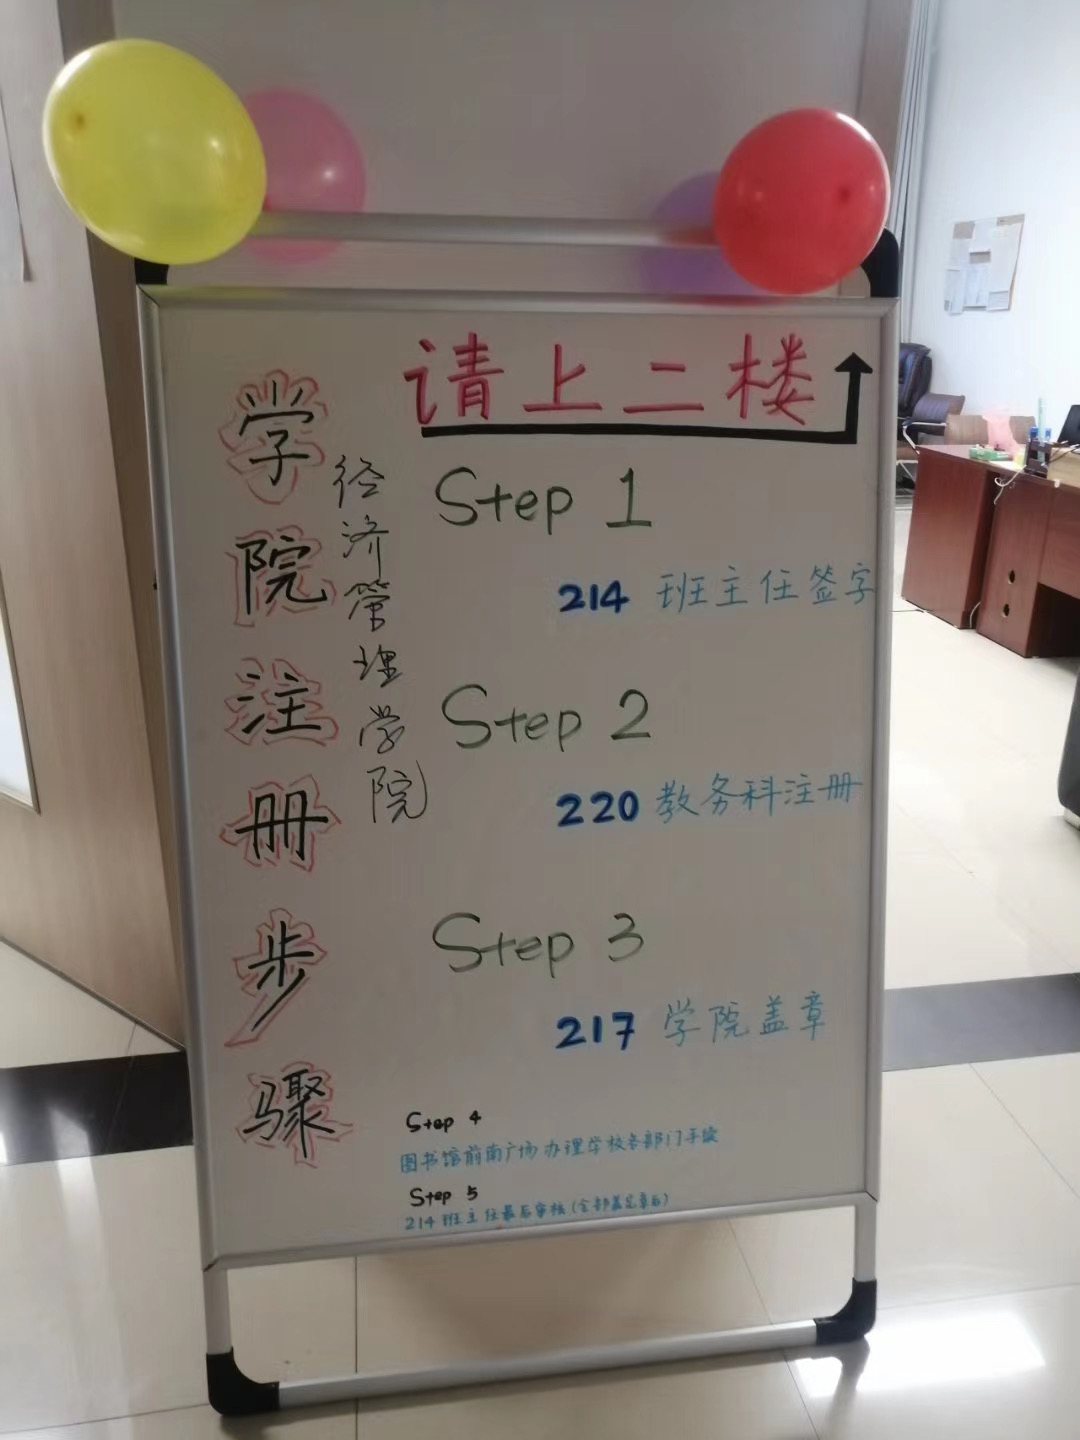 请上二楼
学院注册步骤
经济管理学院
Step 1
214 班主任签字
Step 2
220 教务科注册
Step 3
217 学院盖章
Step 4
图书馆前南广场办理学校各部门手续
Step 5
214 班主任最后审核(全部盖完章后)